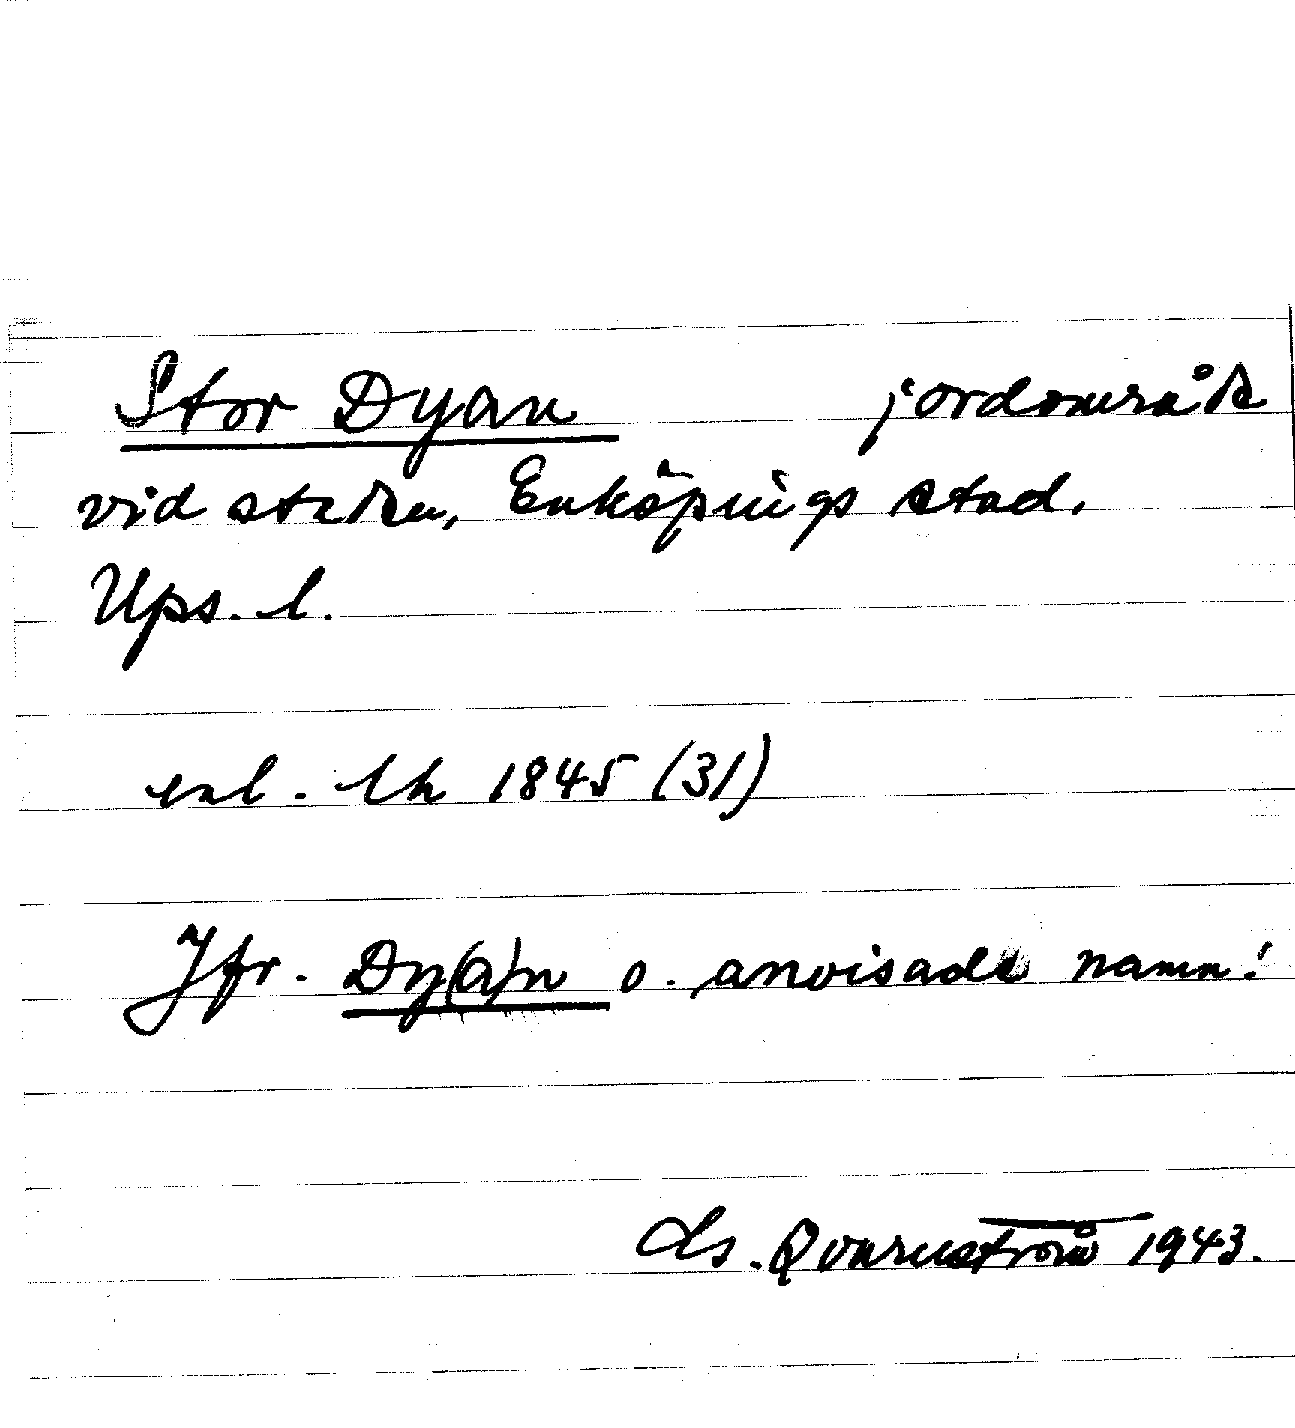 Stor Dyan jordområde
vid staden, Enköpings stad.
Ups. l.
enl. lk 1845 (31)
Jfr. Dy(a)n o. anvisade namn!
Ls. Qvarnström 1943.